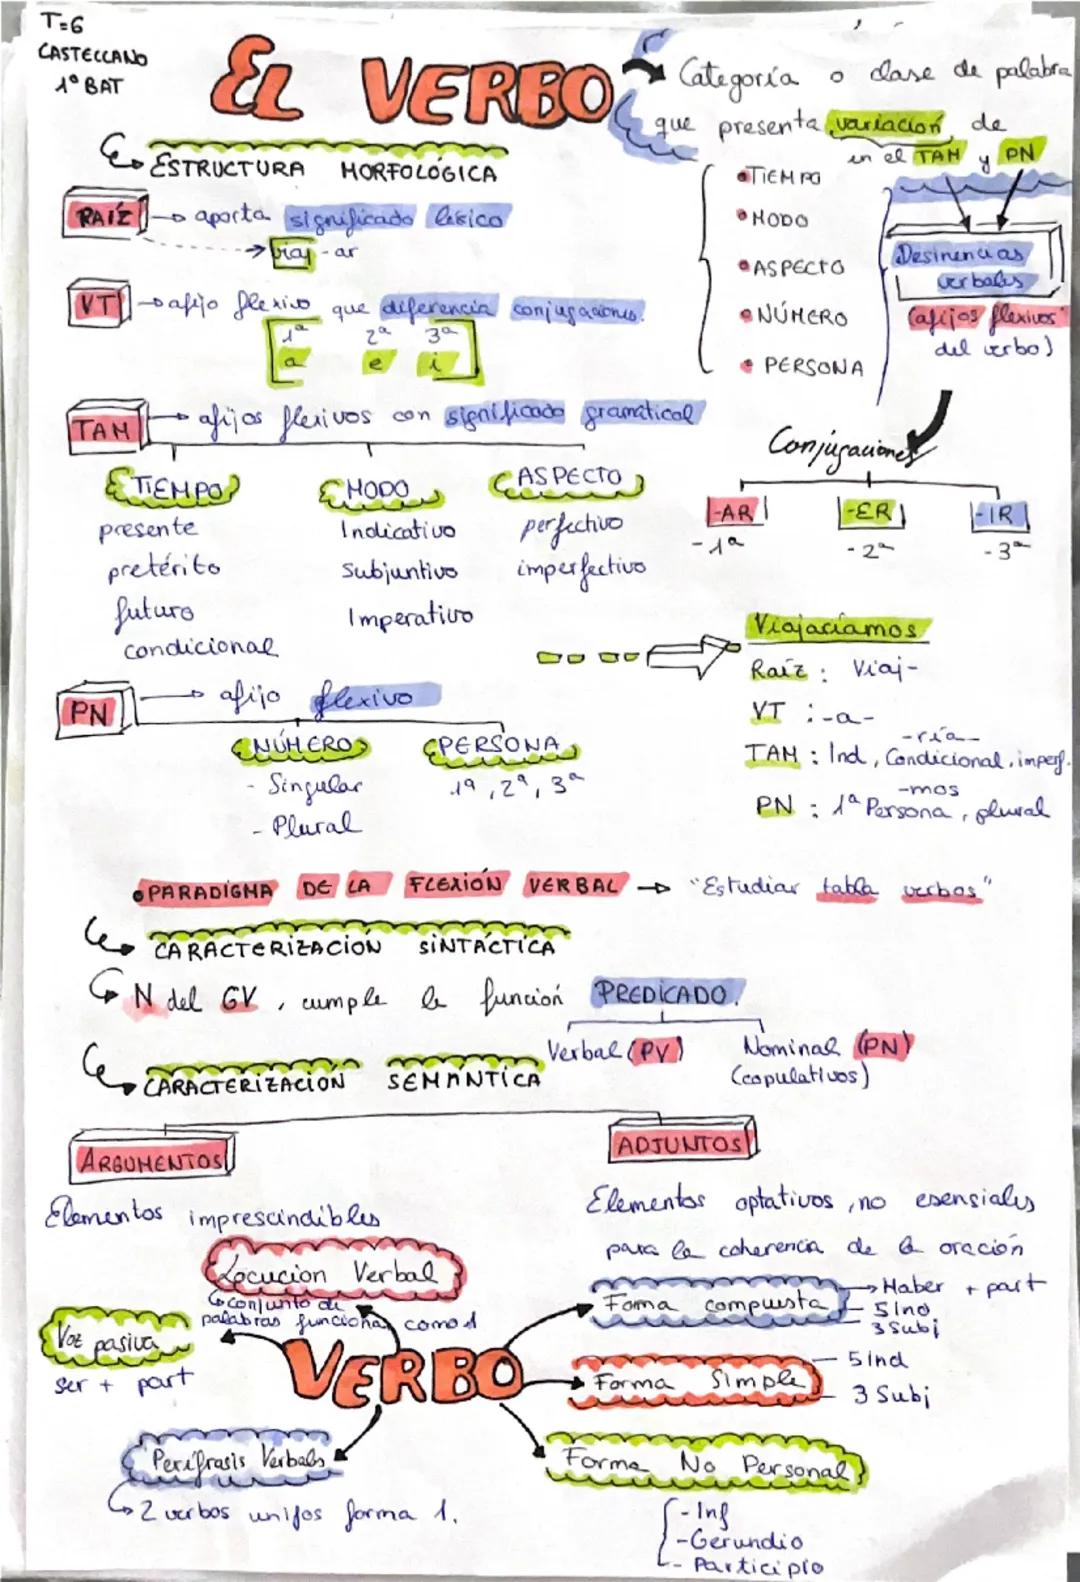 T=6
CASTELLANO
1º BAT
EL VERBO
Categoría o clase de palabra
que presenta variación de
en el TAM y PN
• TIEMPO
• MODO
• ASPECTO
• NÚMERO
• PERSONA
Desinencias
verbales
(afijos flexivos
del verbo)
ESTRUCTURA MORFOLÓGICA
RAÍZ → aporta significado léxico
→ viaj - ar
VT → afijo flexivo que diferencia conjugaciones.
1ª 2ª 3ª
a e i
TAM → afijos flexivos con significado gramatical
TIEMPO MODO ASPECTO
presente Indicativo perfectivo
pretérito Subjuntivo imperfectivo
futuro Imperativo
condicional
Conjugaciones
-AR -ER -IR
-1ª -2ª -3ª
Viajaríamos
Raíz : Viaj-
VT : -a-
-ría-
TAM : Ind, Condicional, imperf.
-mos
PN : 1ª Persona, plural
PN → afijo flexivo
NÚMERO PERSONA
- Singular 1ª, 2ª, 3ª
- Plural
• PARADIGMA DE LA FLEXIÓN VERBAL → "Estudiar tabla verbos"
CARACTERIZACIÓN SINTÁCTICA
N del GV, cumple la función PREDICADO.
Verbal (PV) Nominal (PN)
(copulativos)
CARACTERIZACIÓN SEMÁNTICA
ARGUMENTOS ADJUNTOS
Elementos imprescindibles
Elementos optativos, no esensiales
para la coherencia de la oración
Locucion Verbal
conjunto de
palabras funciona como 1
Voz pasiva
ser + part
VERBO
Forma compuesta
→ Haber + part
5 Ind
3 Subj
Forma Simple
5 Ind
3 Subj
Perífrasis Verbales
2 verbos unifos forma 1.
Forma No Personal
- Inf
- Gerundio
- Participio